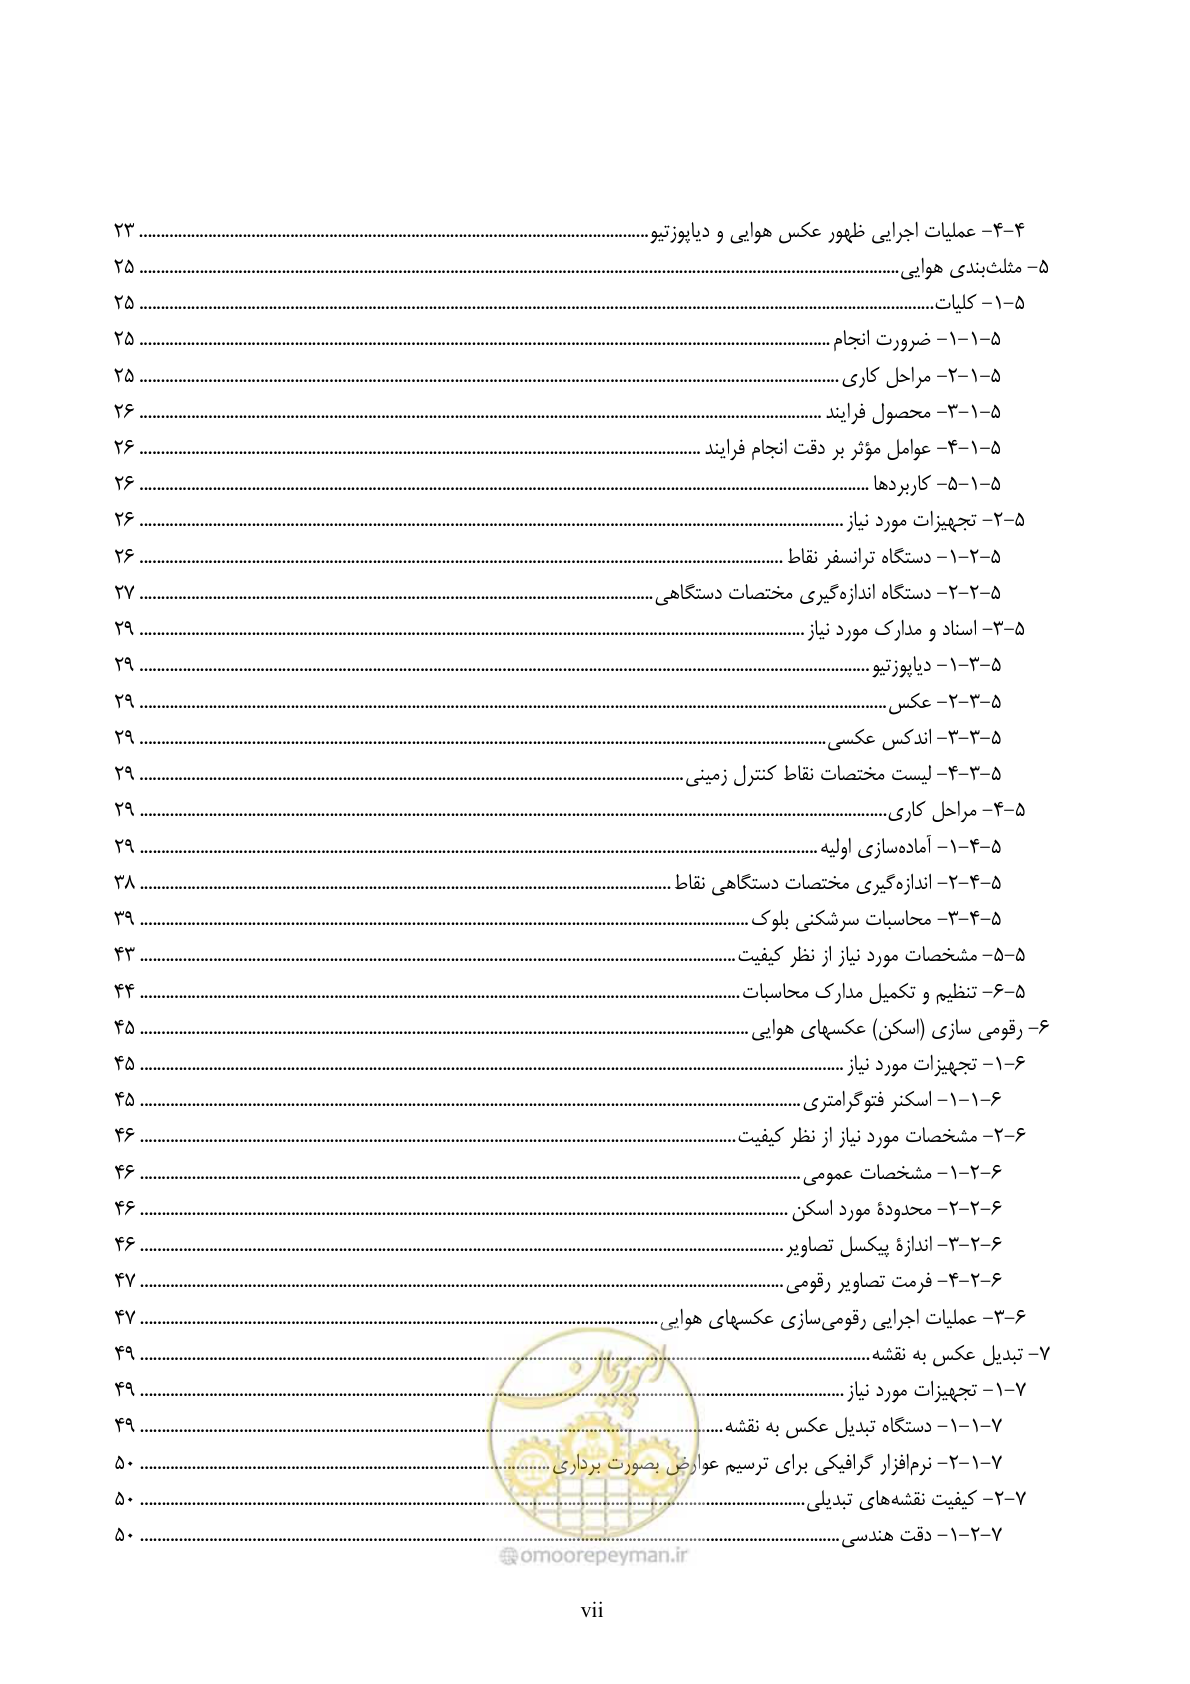 ۴-۴- عملیات اجرایی ظهور عکس هوایی و دیاپوزتیو ........ ۲۳
۵- مثلث‌بندی هوایی ........ ۲۵
۵-۱- کلیات ........ ۲۵
۵-۱-۱- ضرورت انجام ........ ۲۵
۵-۱-۲- مراحل کاری ........ ۲۵
۵-۱-۳- محصول فرایند ........ ۲۶
۵-۱-۴- عوامل مؤثر بر دقت انجام فرایند ........ ۲۶
۵-۱-۵- کاربردها ........ ۲۶
۵-۲- تجهیزات مورد نیاز ........ ۲۶
۵-۲-۱- دستگاه ترانسفر نقاط ........ ۲۶
۵-۲-۲- دستگاه اندازه‌گیری مختصات دستگاهی ........ ۲۷
۵-۳- اسناد و مدارک مورد نیاز ........ ۲۹
۵-۳-۱- دیاپوزتیو ........ ۲۹
۵-۳-۲- عکس ........ ۲۹
۵-۳-۳- اندکس عکسی ........ ۲۹
۵-۳-۴- لیست مختصات نقاط کنترل زمینی ........ ۲۹
۵-۴- مراحل کاری ........ ۲۹
۵-۴-۱- آماده‌سازی اولیه ........ ۲۹
۵-۴-۲- اندازه‌گیری مختصات دستگاهی نقاط ........ ۳۸
۵-۴-۳- محاسبات سرشکنی بلوک ........ ۳۹
۵-۵- مشخصات مورد نیاز از نظر کیفیت ........ ۴۳
۵-۶- تنظیم و تکمیل مدارک محاسبات ........ ۴۴
۶- رقومی سازی (اسکن) عکسهای هوایی ........ ۴۵
۶-۱- تجهیزات مورد نیاز ........ ۴۵
۶-۱-۱- اسکنر فتوگرامتری ........ ۴۵
۶-۲- مشخصات مورد نیاز از نظر کیفیت ........ ۴۶
۶-۲-۱- مشخصات عمومی ........ ۴۶
۶-۲-۲- محدودهٔ مورد اسکن ........ ۴۶
۶-۲-۳- اندازهٔ پیکسل تصاویر ........ ۴۶
۶-۲-۴- فرمت تصاویر رقومی ........ ۴۷
۶-۳- عملیات اجرایی رقومی‌سازی عکسهای هوایی ........ ۴۷
۷- تبدیل عکس به نقشه ........ ۴۹
۷-۱- تجهیزات مورد نیاز ........ ۴۹
۷-۱-۱- دستگاه تبدیل عکس به نقشه ........ ۴۹
۷-۱-۲- نرم‌افزار گرافیکی برای ترسیم عوارض بصورت برداری ........ ۵۰
۷-۲- کیفیت نقشه‌های تبدیلی ........ ۵۰
۷-۲-۱- دقت هندسی ........ ۵۰
امور پیمان
@omoorepeyman.ir
vii